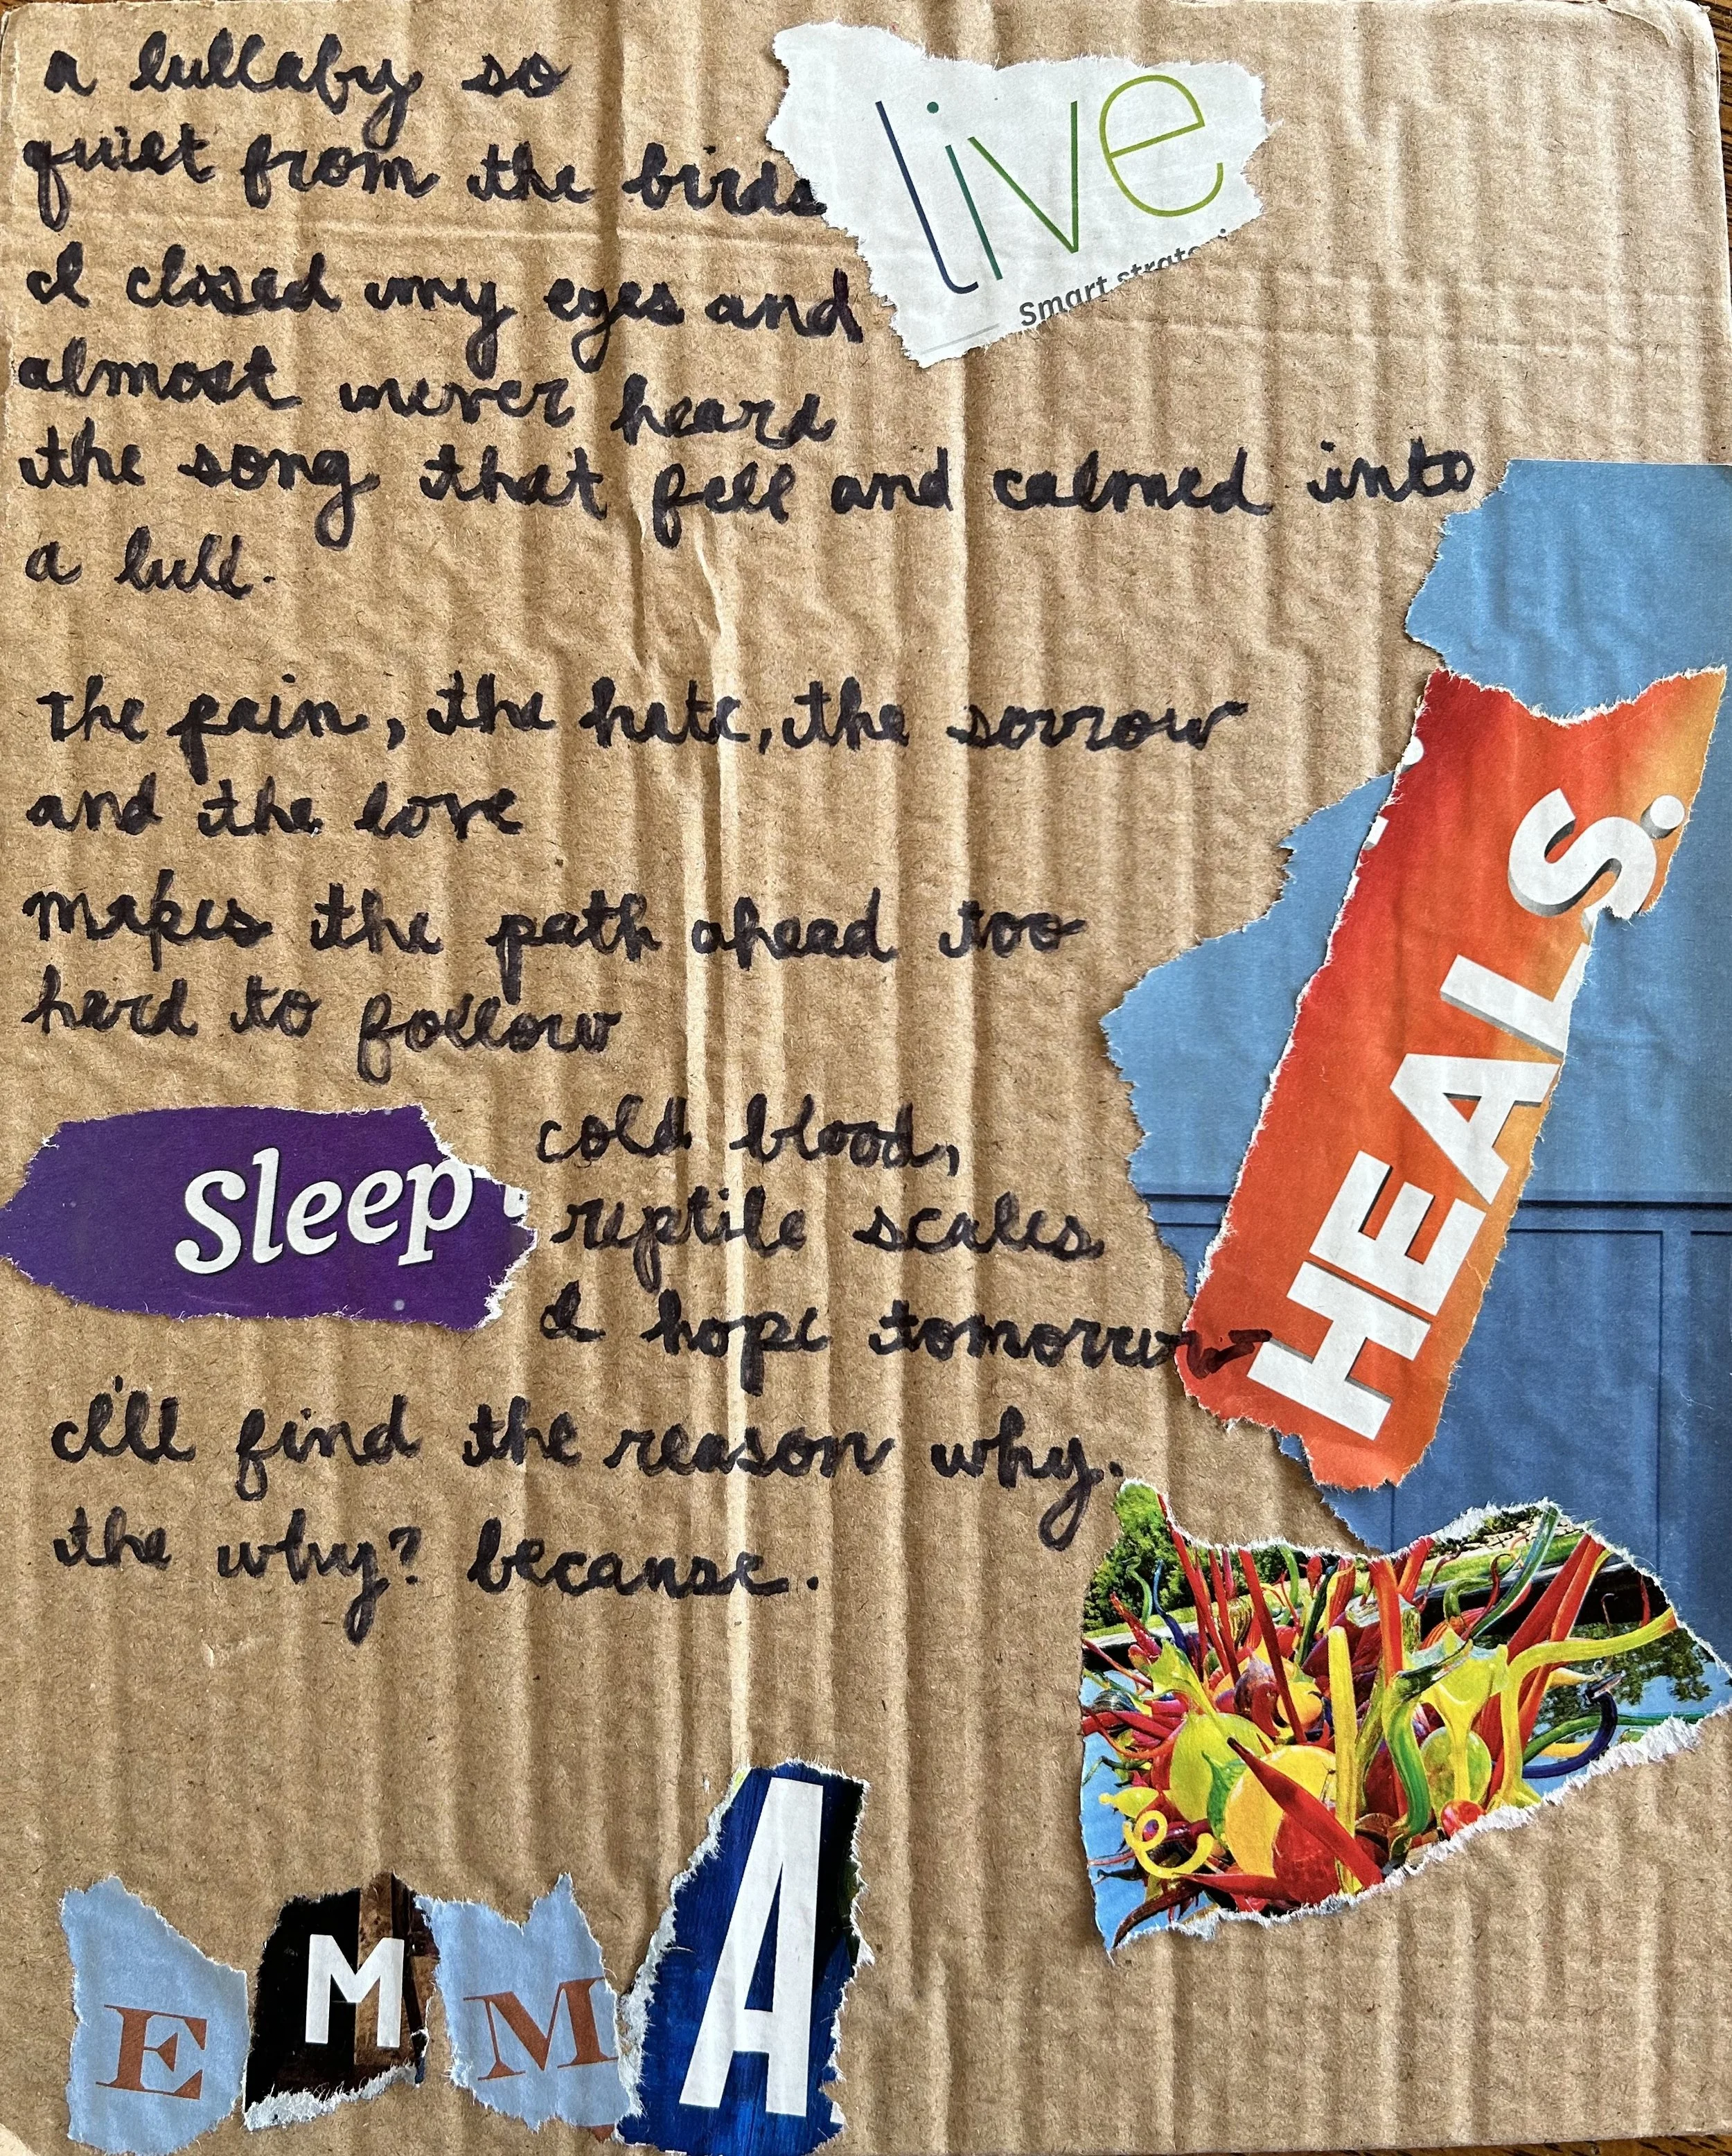 a lullaby so
live
quiet from the birds
Smart
I closed my eyes and
almost never heard
the song that fell and calmed into
a lull.
the pain, the hate, the sorrow
and the love
makes the path ahead too
hard to follow
HEALS.
Sleep
cold blood,
reptile scales
I hope tomorrow
I'll find the reason why.
the why? because.
EMMA